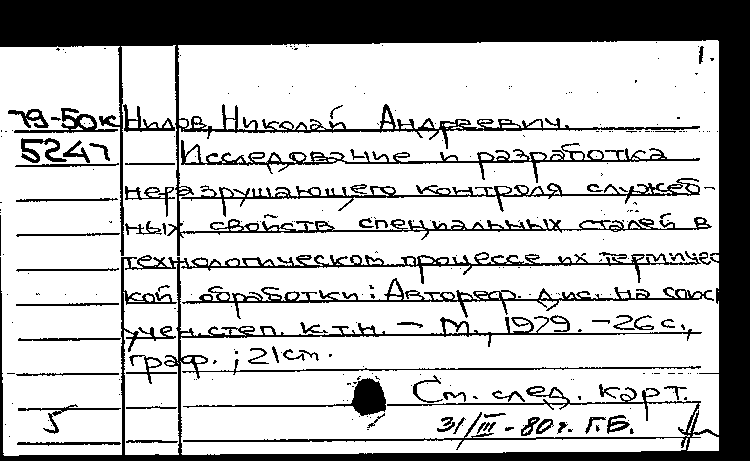 1.
79-50к Нилов, Николай Андреевич.
5247 Исследование и разработка
неразрушающего контроля служеб-
ных свойств специальных сталей в
технологическом процессе их термичес
кой обработки: Автореф. дис. на соиск
учен. степ. к.т.н. — М., 1979. - 26 с.,
граф. ; 21 см.
См. след. карт.
5 31/III - 80 г. Г.Б.